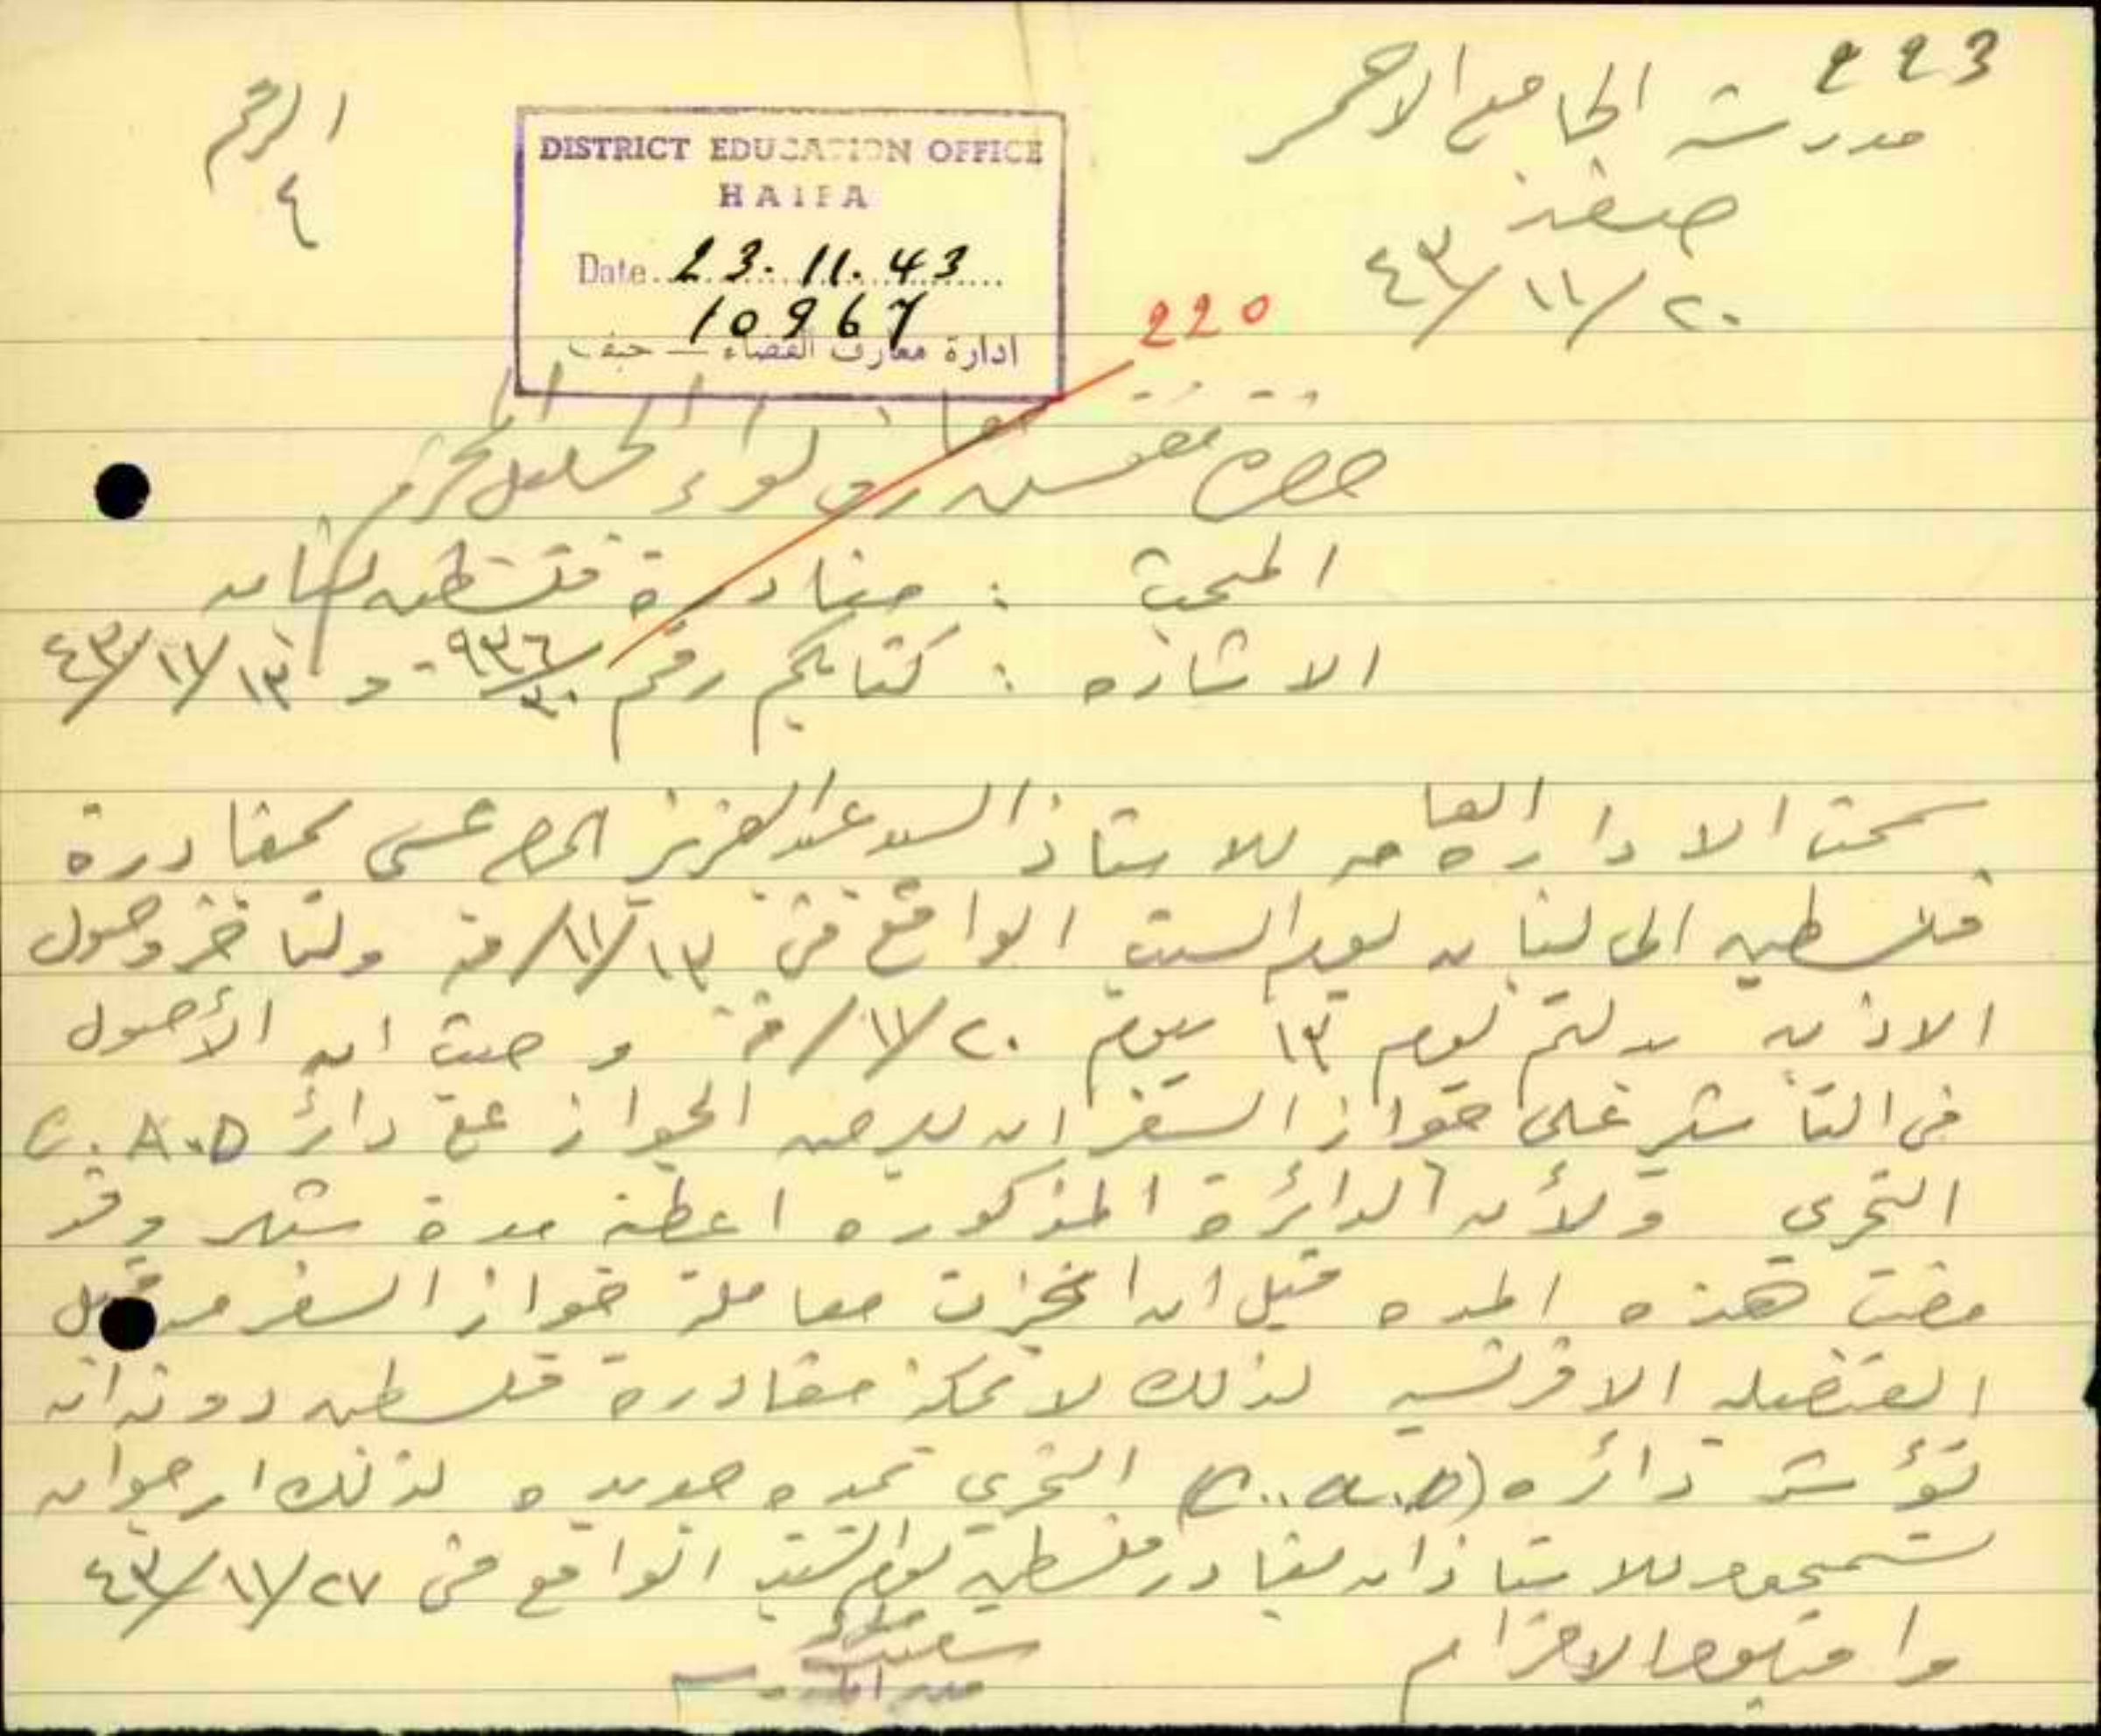 223
مدرسة الجامع الاحمر
صفد
٢٠/١١/٤٣
الرقم
٤
DISTRICT EDUCATION OFFICE
HAIFA
Date 23.11.43
10967
ادارة معارف القضاء — حيفا
220
حضرة مفتش معارف لواء الجليل المحترم
المبحث : مغادرة فلسطين لبنان
الاشاره : كتابكم رقم ٩٣٦/٣٠ و ١٣/١١/٤٣
سمحت الاداره العامه للاستاذ السيد عبد العزيز بمغادرة
فلسطين الى لبنان يوم السبت الواقع في ١٣/١١/منه ولتأخر وصول
الاذن يوم ١٣ ليوم ٢٠/١١/منه وحيث ان الأصول
في التأشير على جواز السفر ان الجواز على دائرة C.A.D
التحري ولأن الدائرة المذكوره اعطته مدة شهر وقد
مضت هذه المده قبل ان انجزت معاملة جواز السفر من قبل
القنصليه الافرنسيه لذلك لا يمكنه مغادرة فلسطين دون ان
تؤشر دائره (C.A.D) التحري بمده جديده لذلك ارجو ان
تسمحوا للاستاذ ان يغادر فلسطين يوم السبت الواقع في ٢٧/١١/٤٣
واقبلوا الاحترام
مدير المدرسة